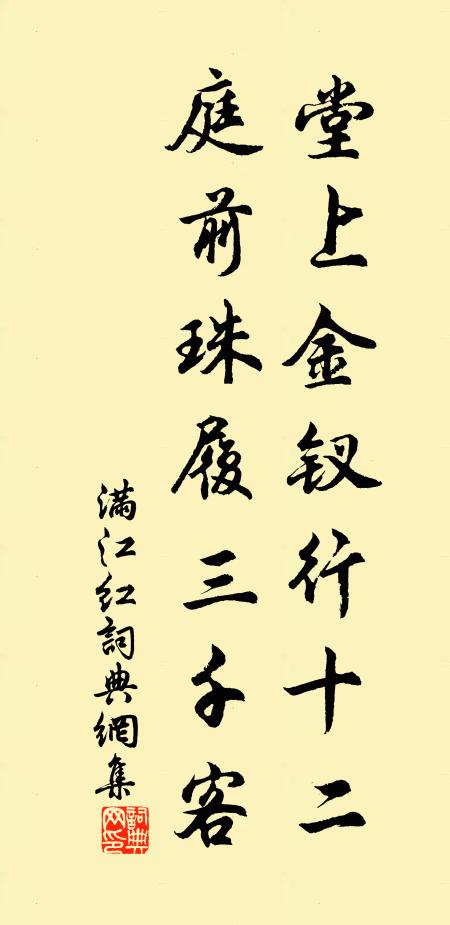 堂上金钗行十二
庭前珠履三千客
满江红词典網集
詞典
网印